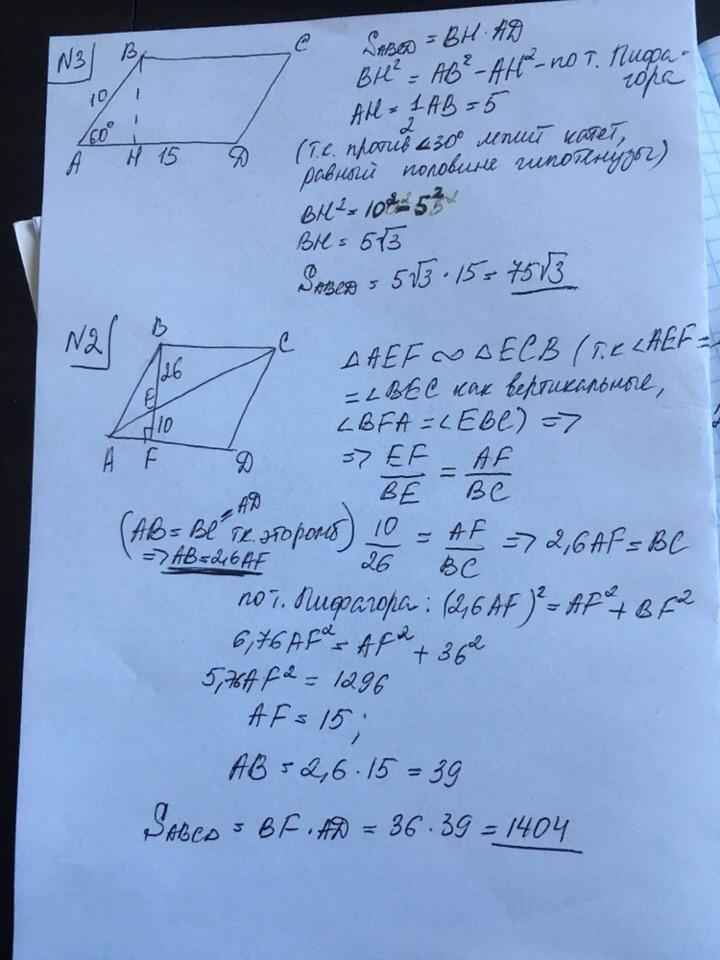 N3
B
C
10
60°
A
H
15
D
S_ABCD = BH · AD
BH² = AB² - AH² - по т. Пифа-
гора
AH = 1/2 AB = 5
(т.с. против ∠30° лежит катет,
равный половине гипотенузы)
BH² = 10² - 5²
BH = 5√3
S_ABCD = 5√3 · 15 = 75√3
N2
B
C
26
E
10
A
F
D
△AEF ∾ △ECB (т.к ∠AEF =
= ∠BEC как вертикальные,
∠BFA = ∠EBC) =>
=> EF/BE = AF/BC
(AB = BC = AD т.к. это ромб)
=> AB = 2,6AF
10/26 = AF/BC => 2,6AF = BC
по т. Пифагора: (2,6AF)² = AF² + BF²
6,76AF² = AF² + 36²
5,76AF² = 1296
AF = 15;
AB = 2,6 · 15 = 39
S_ABCD = BF · AD = 36 · 39 = 1404